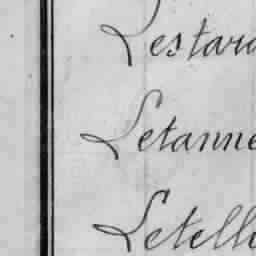 Lestar
Letanne
Letell